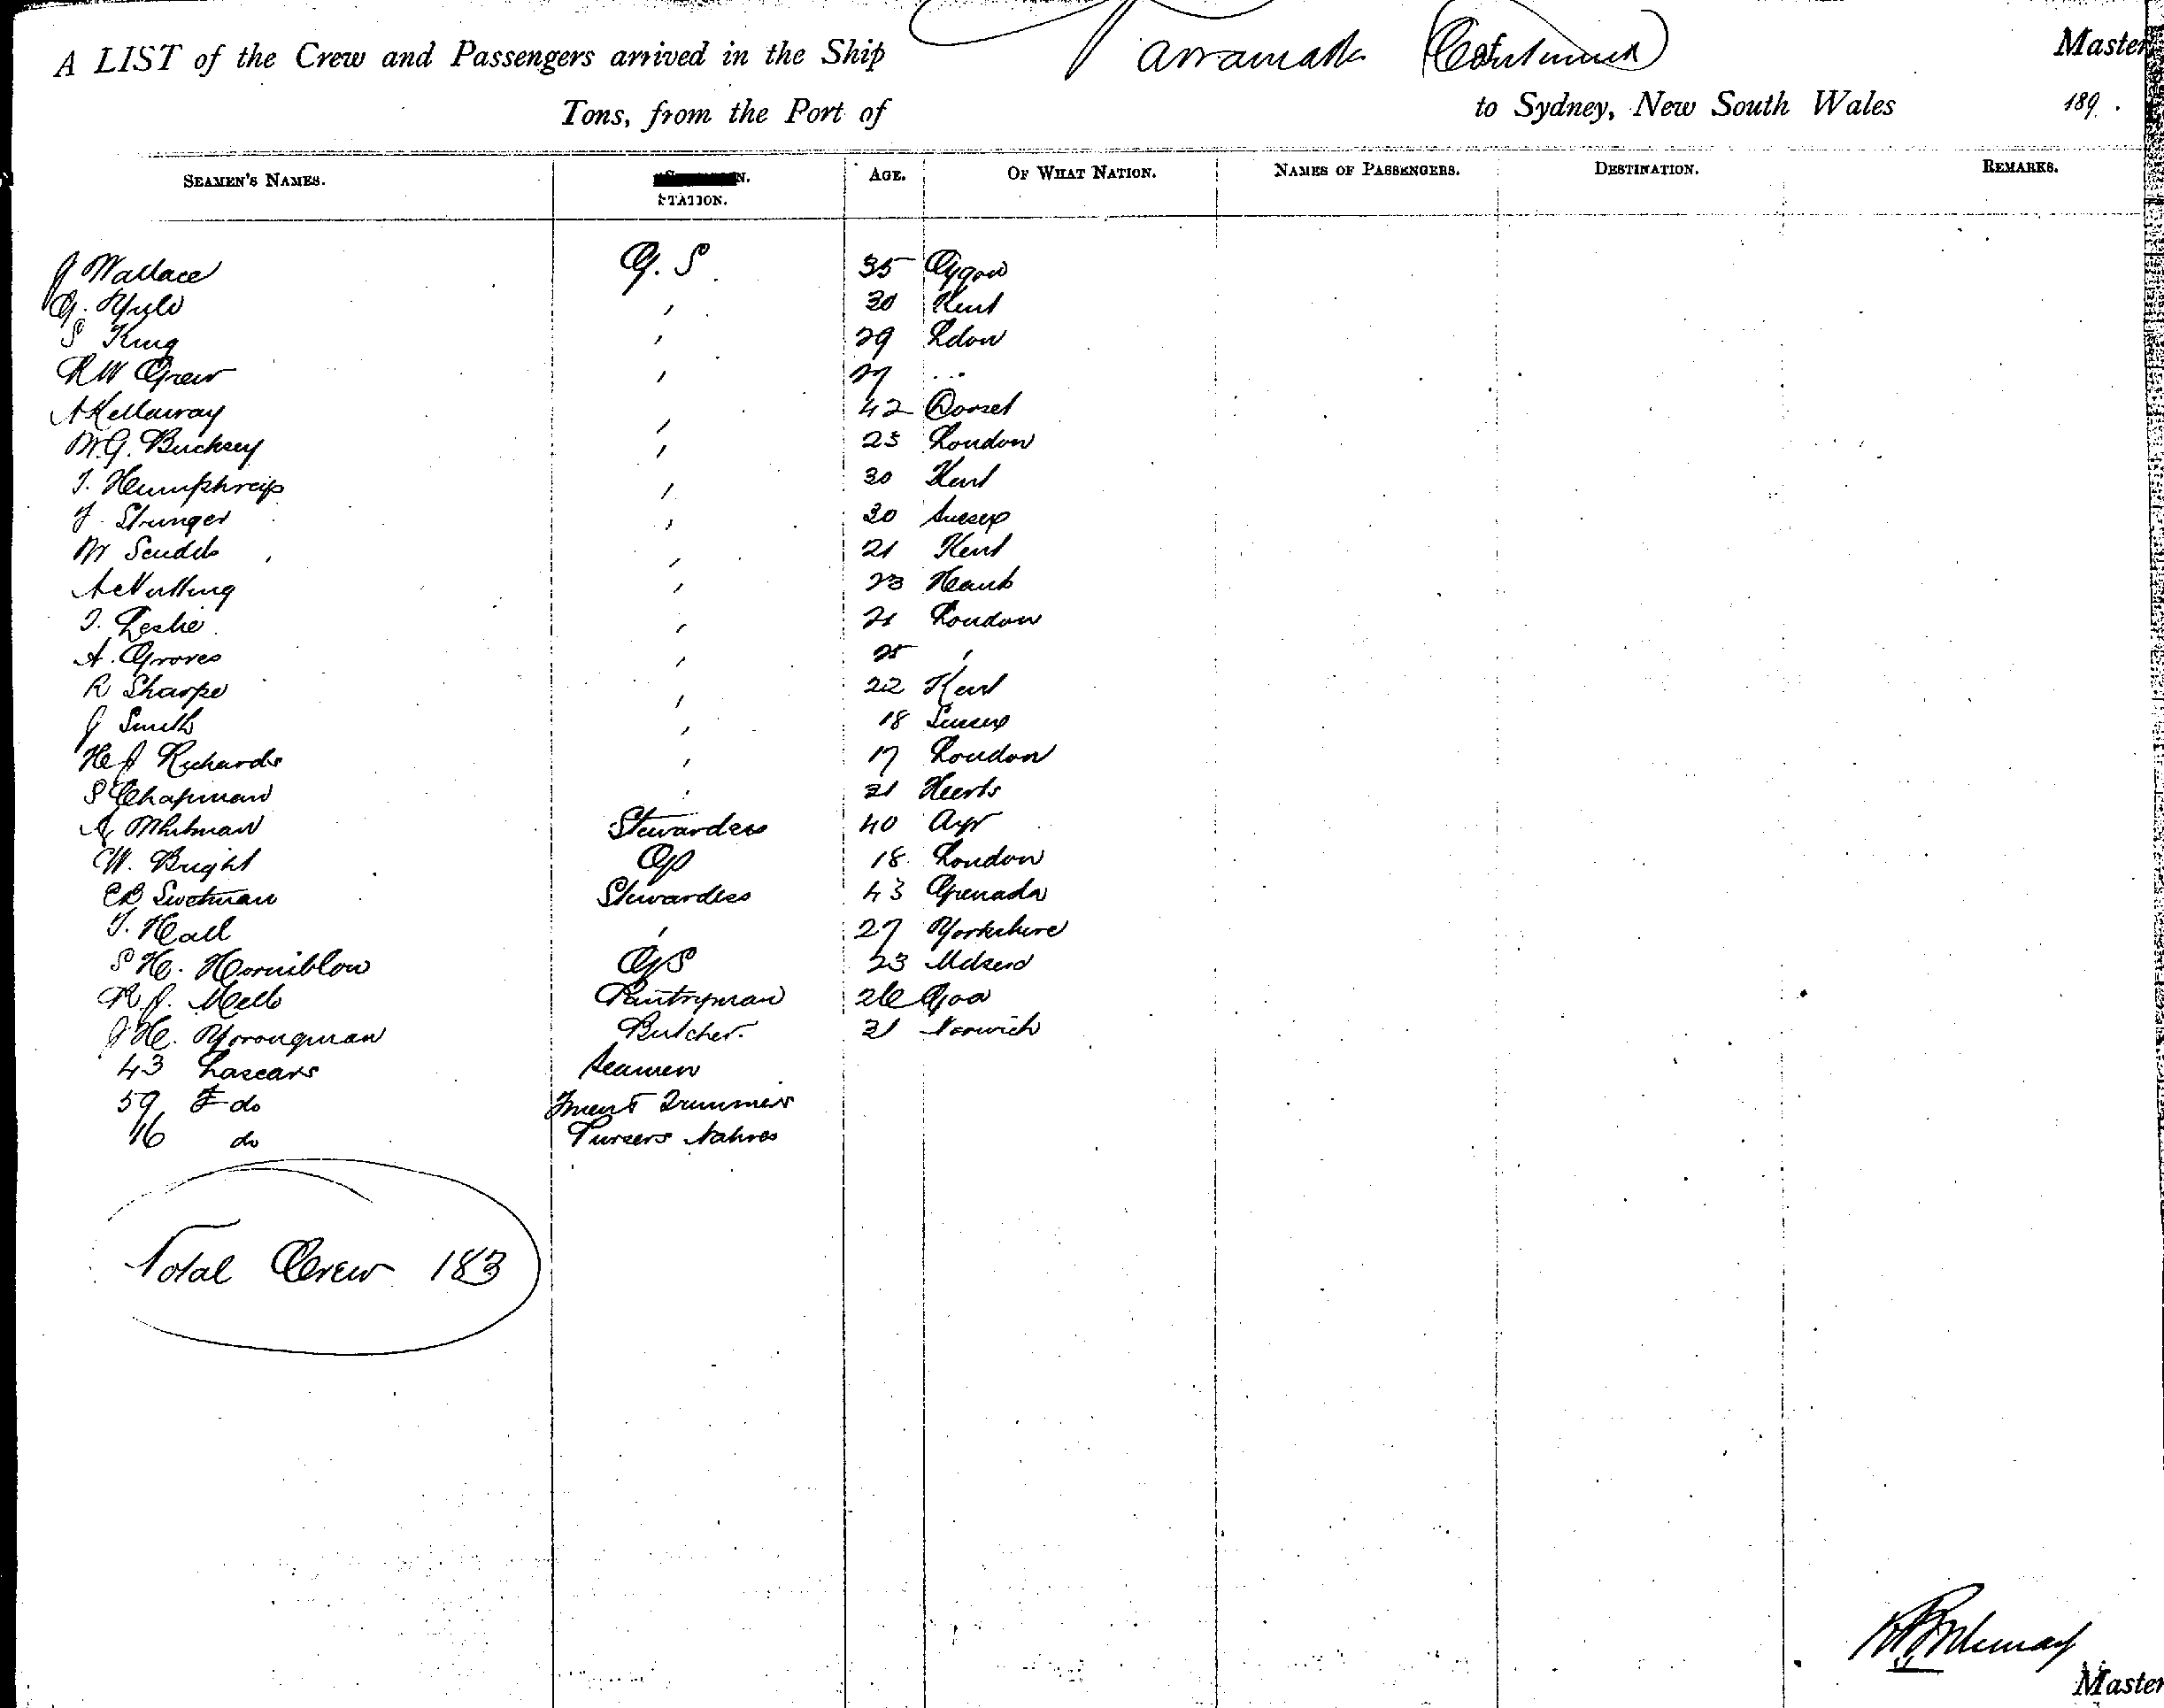 A LIST of the Crew and Passengers arrived in the Ship Parramatta (Continued) Master
Tons, from the Port of to Sydney, New South Wales 189 .
SEAMEN'S NAMES. STATION. AGE. OF WHAT NATION. NAMES OF PASSENGERS. DESTINATION. REMARKS.
J Wallace G. S 35
G. Yule , 30 Kent
S King , 29 Ldon
R W Grew , 27 "
A Kellaway , 42 Dorset
W. G. Bucksey , 23 London
T. Humphreys , 30 Kent
F. Stunger , 20 Sussex
W , 21 Kent
A Nutting , 23 Hants
T. Leslie , 21 London
A. Groves , 25 ,
R Sharpe , 22 Kent
J Smith , 18 Sussex
H J Richards , 17 London
S Chapman , 21 Herts
A Whitman Stewardess 40 Ayr
W. Bright GS 18 London
Swetman Stewardess 43 Grenada
T. Hall , 27 Yorkshire
S H. Horniblow GS 23
R J. Mello Pantryman 26 Goa
J H. Youngman Butcher. 31 Norwich
43 Lascars Seamen
59 do Firemen & Trimmers
16 do Pursers Natives
Total Crew 183
Master